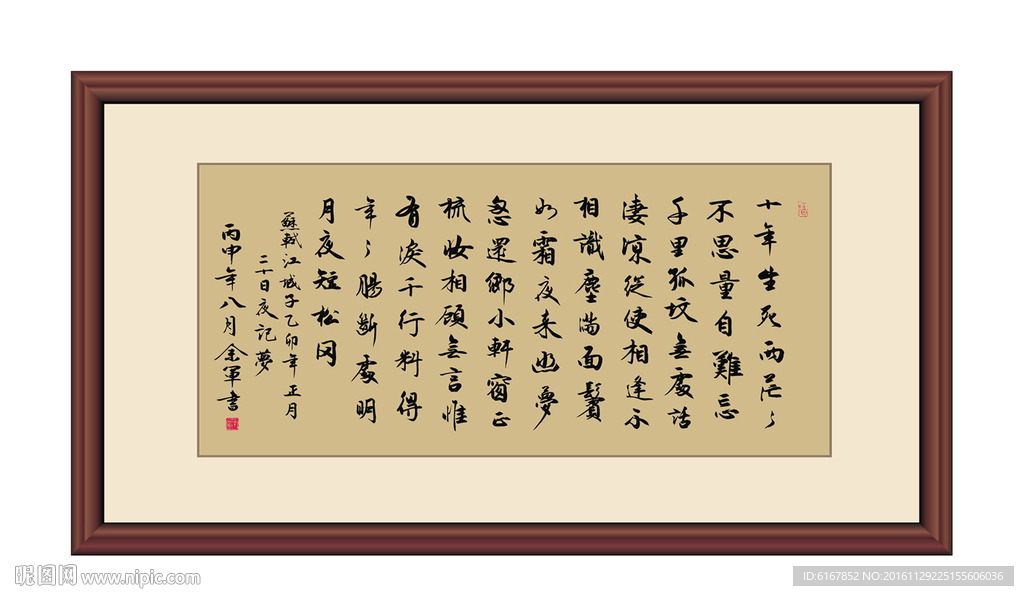 十年生死兩茫々
不思量自難忘
千里孤墳無處話
淒涼從使相逢不
相識塵滿面鬢
如霜夜来幽夢
忽還鄉小軒窗正
梳妝相顧無言惟
有淚千行料得
年々腸斷處明
月夜短松冈
蘇軾江城子乙卯年正月
二十日夜記夢
丙申年八月余軍書
昵图网 www.nipic.com
ID:6167852 NO:20161129225155606036